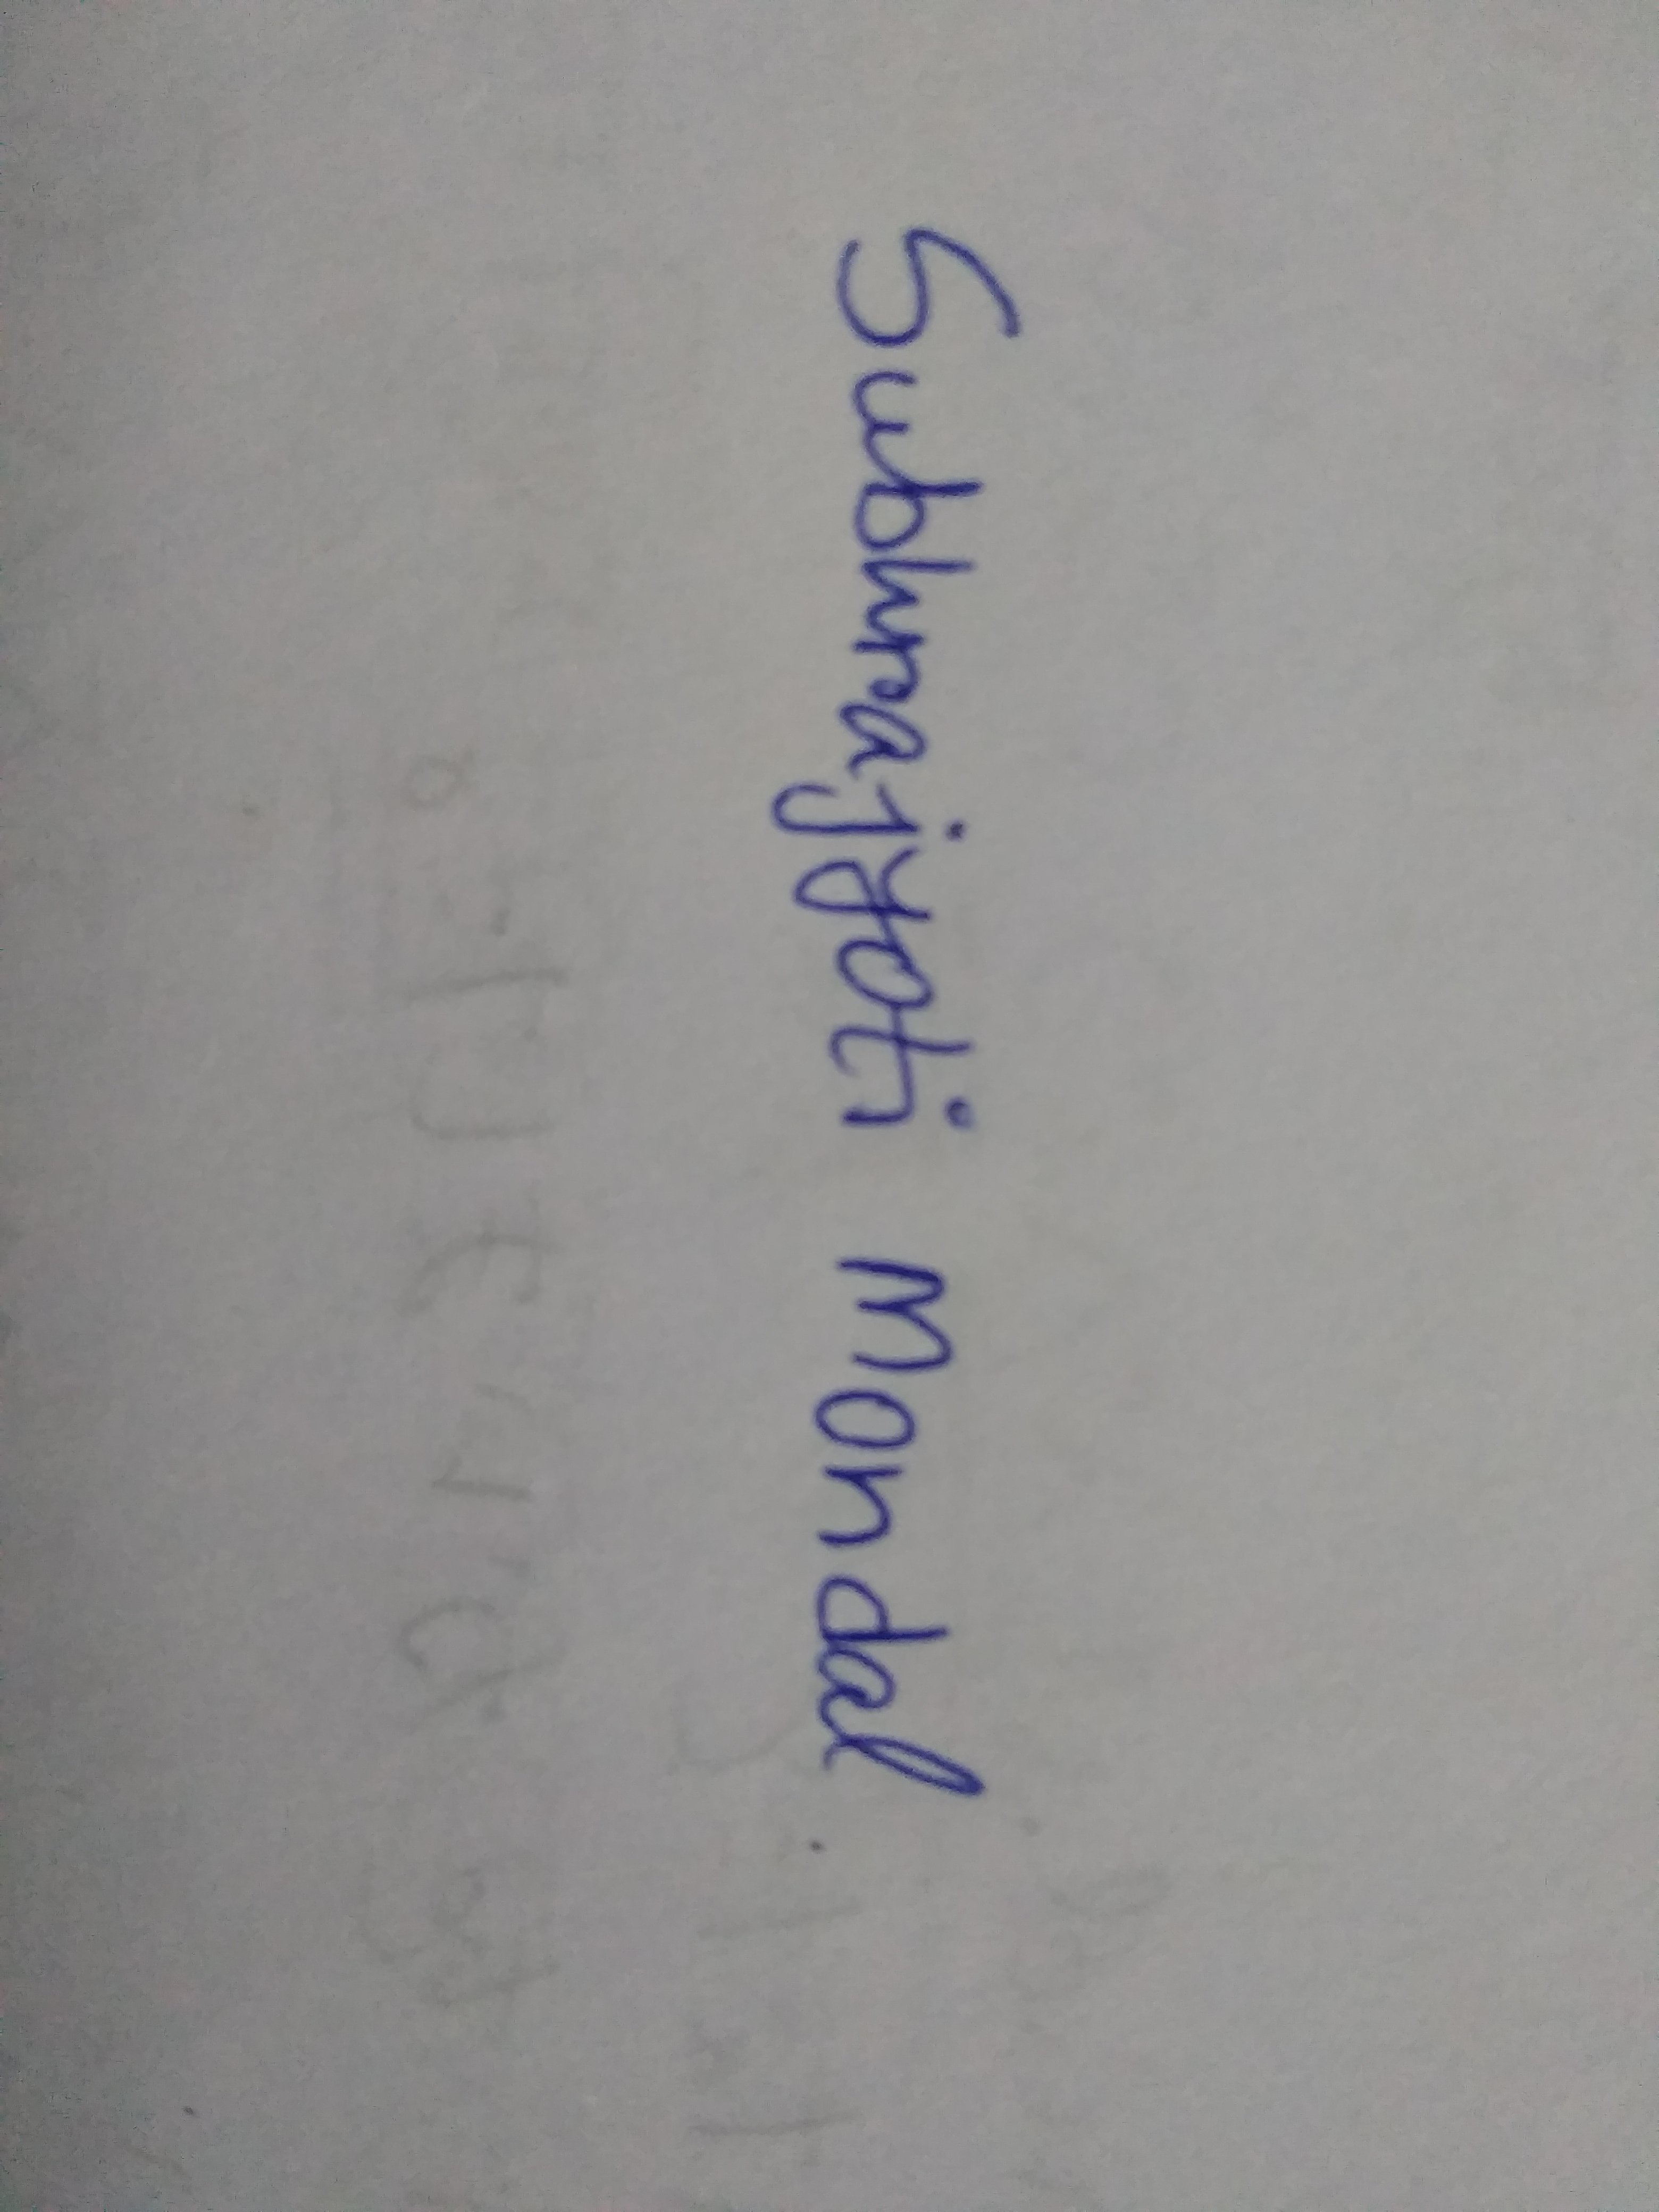 Subhrajyoti Mondal